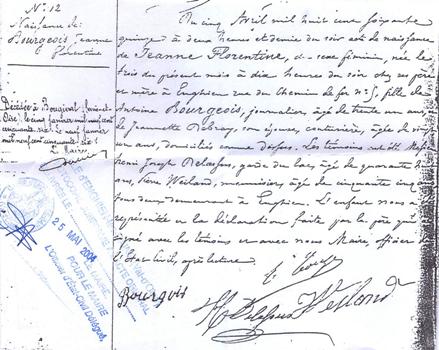 N.° 12
Naissance de
Bourgeois Jeanne
Florentine
Décédée à Bougival (Seine et
Oise) le cinq janvier mil neuf cent
cinquante six. Le neuf janvier
mil neuf cent cinquante six.
Le Maire
25 MAI 2004
POUR LE MAIRE
L'Officier d'Etat-Civil Délégué,
Du cinq Avril mil huit cent soixante
quinze à deux heures et demie du soir acte de naissance
de Jeanne Florentine, du sexe féminin, née le
trois du présent mois à dix heures du soir chez ses père
et mère à Enghien rue du Chemin de fer n° 5, fille de
Antoine Bourgeois, journalier, âgé de trente un ans
de Jeannette Debray, son épouse, couturière, âgée de vingt
un ans, domiciliés comme dessus. Les témoins ont été
Henri Joseph Delasfus, garde du lac, âgé de quarante
ans, Pierre Weiland, menuisier, âgé de cinquante cinq
tous deux demeurant à Enghien. L'enfant nous a
représentée et la déclaration faite par le père qui
signé avec les témoins et avec nous Maire, officier de
l'État Civil, après lecture.
Bourgois
Weiland